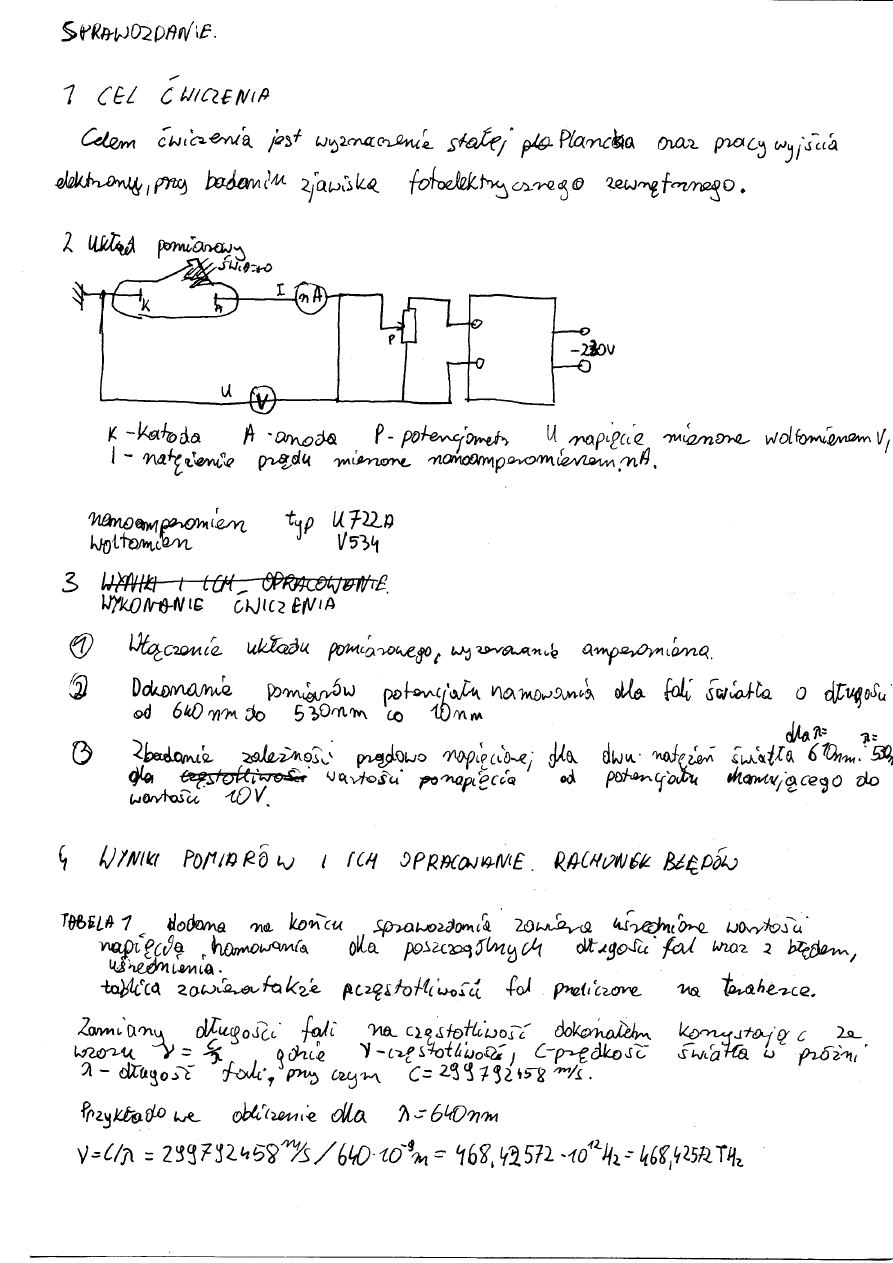 SPRAWOZDANIE.
1 CEL ĆWICZENIA
Celem ćwiczenia jest wyznaczenie stałej Plancka oraz pracy wyjścia
elektronu, przy badaniu zjawiska fotoelektrycznego zewnętrznego.
2 Układ pomiarowy
ŚWIATŁO
K A I nA P ~230V
U V
K - katoda A - anoda P - potencjometr U napięcie mierzone woltomierzem V,
I - natężenie prądu mierzone nanoamperomierzem nA.
nanoamperomierz typ U722A
woltomierz V534
3 WYNIKI I ICH OPRACOWANIE.
WYKONANIE ĆWICZENIA
1 Włączenie układu pomiarowego, wyzerowanie amperomierza.
2 Dokonanie pomiarów potencjału hamowania dla fali światła o długości
od 640 nm do 530nm co 10nm
dla λ= λ=
3 Zbadanie zależności prądowo napięciowej dla dwu natężeń światła 610nm. 530n
dla częstotliwości wartości napięcia od potencjału hamującego do
wartości 10V.
4 WYNIKI POMIARÓW I ICH OPRACOWANIE. RACHUNEK BŁĘDÓW
TABELA 1 dodana na końcu sprawozdania zawiera uśrednione wartości
napięcia hamowania dla poszczególnych długości fal wraz z błędem,
uśrednienia.
tablica zawiera także częstotliwości fal przeliczone na Teraherce.
Zamiany długości fali na częstotliwość dokonałem korzystając ze
wzoru ν = c/λ gdzie ν-częstotliwość, C-prędkość światła w próżni
λ - długość fali, przy czym C=299792458 m/s.
Przykładowe obliczenie dla λ=640nm
ν=C/λ = 299792458 m/s / 640·10⁻⁹m = 468,42572·10¹²Hz = 468,42572 THz